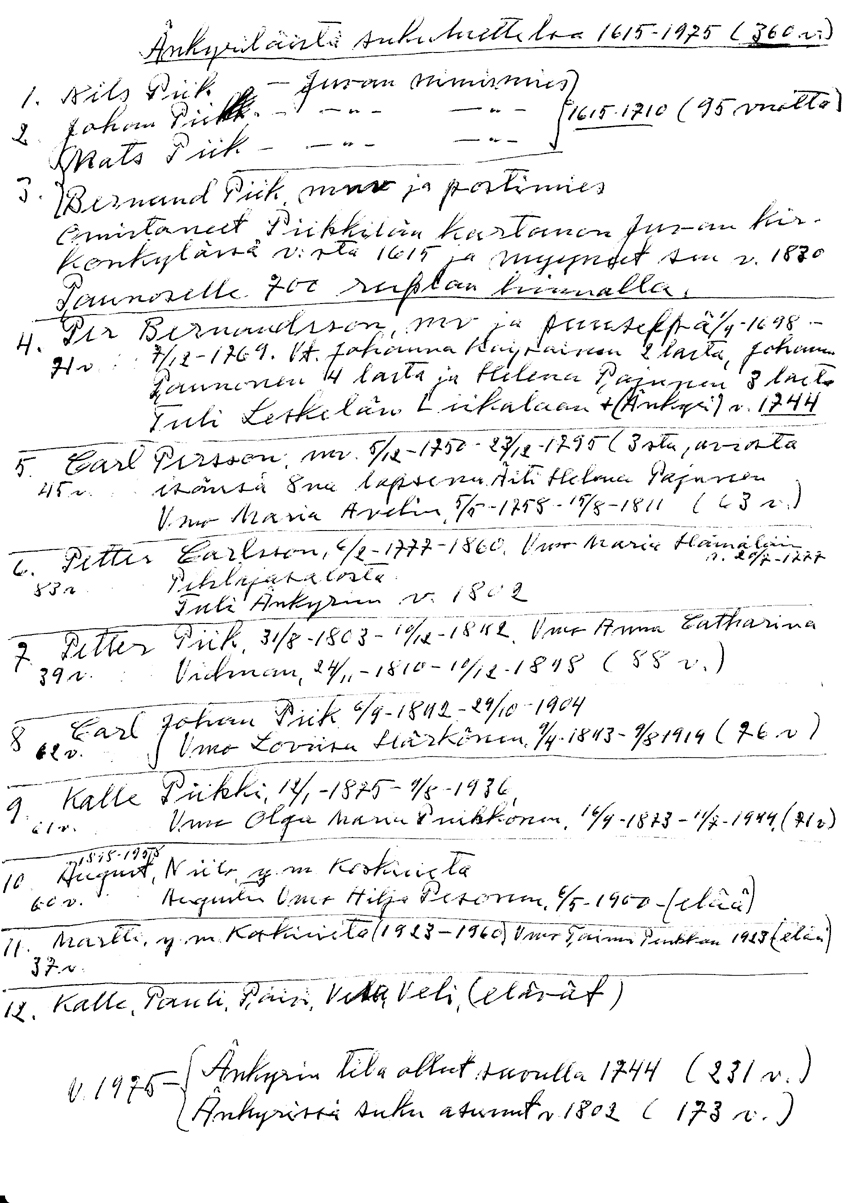 Änkyriläistä sukuluetteloa 1615-1975 (360 v.)
1. Nils Piik - Juvan nimismies
2. Johan Piik - -"- -"- 1615-1710 (95 vuotta)
Mats Piik - -"- -"-
3. Bernand Piik, mv ja postimies
Omistaneet Piikkilän kartanon Juvan kir-
konkylässä v:sta 1615 ja myyneet sen v. 1830
Paunoselle 700 ruplan hinnalla.
4. Per Bernandsson, mv ja puuseppä 1/9-1698 -
71 v. 7/12-1769. Vt. Johanna 2 lasta, Johanna
Paunonen 4 lasta ja Helena Pajunen 3 lasta
Tuli Leskelän Liikalaan + (Änkyri) v. 1744
5. Carl Persson, mv. 5/12-1750 - 23/12-1795 (3:sta, aviosta
45 v. isänsä 8na lapsena Äiti Helena Pajunen
Vmo Maria Avelin, 5/5-1758 - 15/8-1811 (63 v.)
6. Petter Carlsson, 6/2-1777-1860. Vmo Maria Hämäläin
83 v. Pihlajasalosta s. 20/7-1777
Tuli Änkyriin v. 1802
7 Petter Piik, 31/8-1803 - 10/12-1842. Vmo Anna Catharina
39 v. Vidman, 24/11-1810 - 10/12-1898 (88 v.)
8 Carl Johan Piik 6/9-1842 - 29/10-1904
62 v. Vmo Loviisa Härkönen, 9/4-1843 - 9/8 1919 (76 v)
9. Kalle Piikki, 12/1-1875 - 9/8-1936,
61 v. Vmo Olga Maria Puikkonen, 16/9-1873 - 11/7-1944, (71 v)
1898-1958
10. August, Niilo, y.m Koskivieta
60 v. Augustin Vmo Hilja Pesonen, 6/5-1900 - (elää)
11. Martti, y.m. Koskivieta (1923-1960) Vmo Taimi 1923 (elää)
37 v.
12. Kalle, Pauli, Päivi, Vesa, Veli, (elävät)
V. 1975 - Änkyrin tila ollut suvulla 1744 (231 v.)
Änkyrissä suku asunut v 1802 (173 v.)